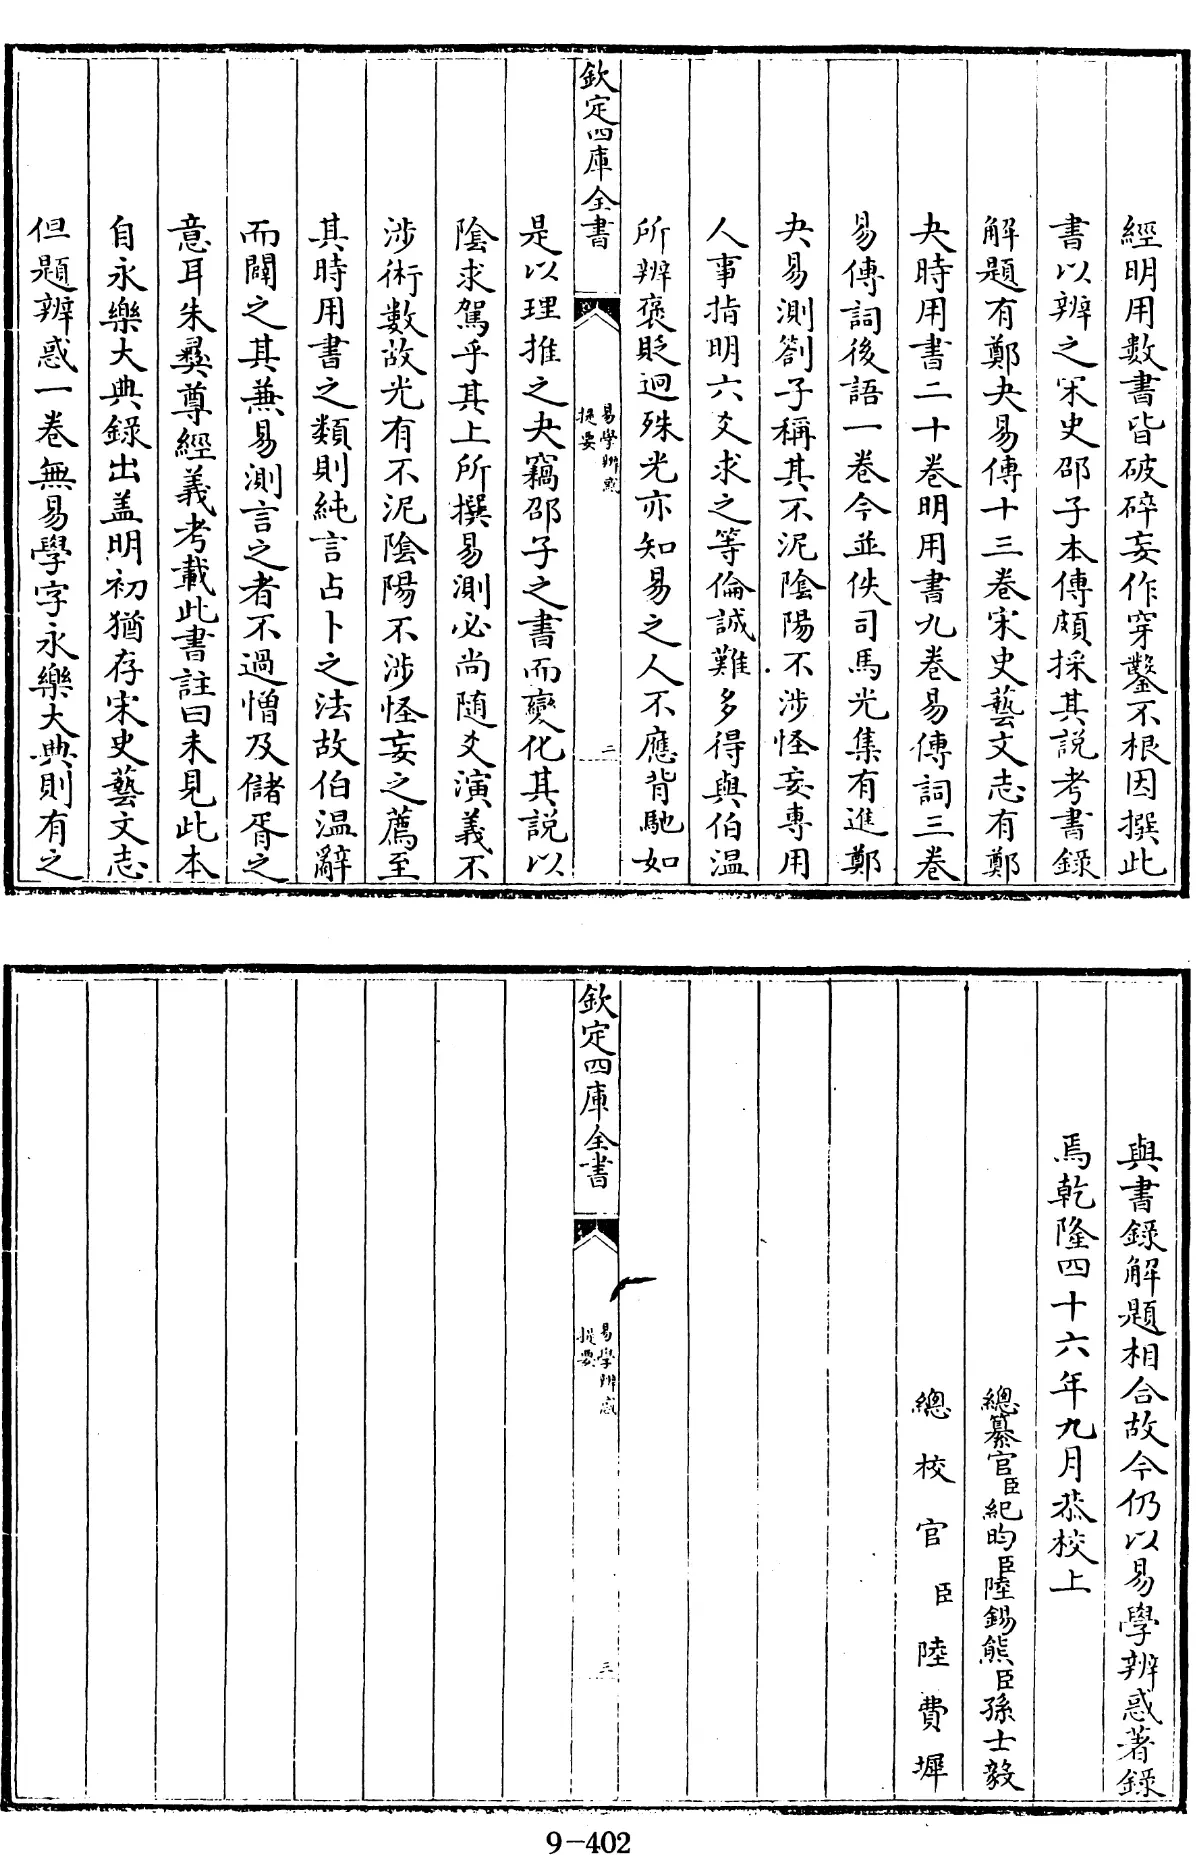 經明用數書皆破碎妄作穿鑿不根因撰此
書以辨之宋史邵子本傳頗採其説考書録
解題有鄭夬易傳十三巻宋史藝文志有鄭
夬時用書二十巻明用書九巻易傳詞三巻
易傳詞後語一巻今並佚司馬光集有進鄭
夬易測劄子稱其不泥陰陽不涉怪妄專用
人事指明六爻求之等倫誠難多得與伯温
所辨褒貶迥殊光亦知易之人不應背馳如
欽定四庫全書
易學辨惑
提要
二
是以理推之夬竊邵子之書而變化其説以
陰求駕乎其上所撰易測必尚随爻演義不
涉術數故光有不泥陰陽不涉怪妄之薦至
其時用書之類則純言占卜之法故伯温辭
而闢之其兼易測言之者不過憎及儲胥之
意耳朱彝尊經義考載此書註曰未見此本
自永樂大典録出盖明初猶存宋史藝文志
但題辨惑一巻無易學字永樂大典則有之
與書録解題相合故今仍以易學辨惑著録
焉乾隆四十六年九月恭校上
總纂官臣紀昀臣陸錫熊臣孫士毅
總校官臣陸費墀
欽定四庫全書
易學辨惑
提要
三
9-402